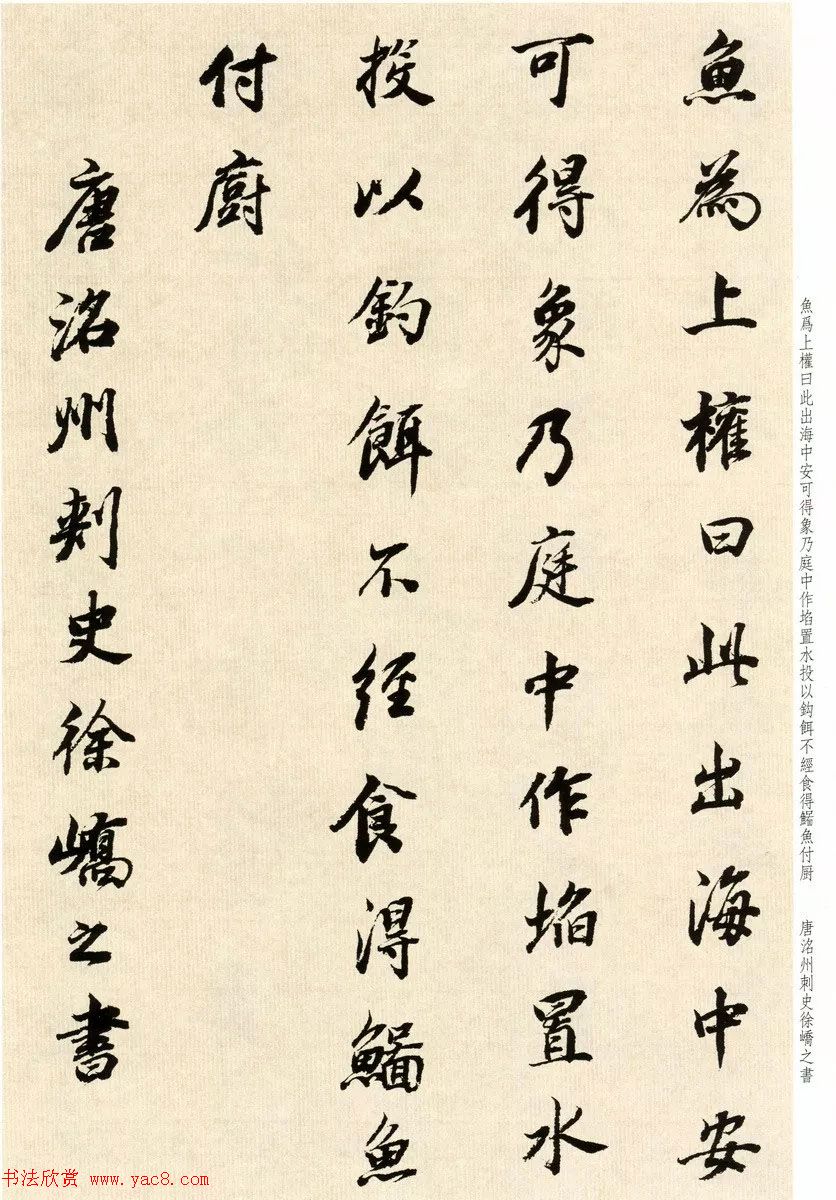 魚為上權曰此出海中安
可得象乃庭中作埳置水
投以鈎餌不經食得鯔魚
付廚
唐洺州刺史徐嶠之書
魚爲上權曰此出海中安可得象乃庭中作埳置水投以鈎餌不經食得鯔魚付厨
唐洺州刺史徐嶠之書
书法欣赏 www.yac8.com